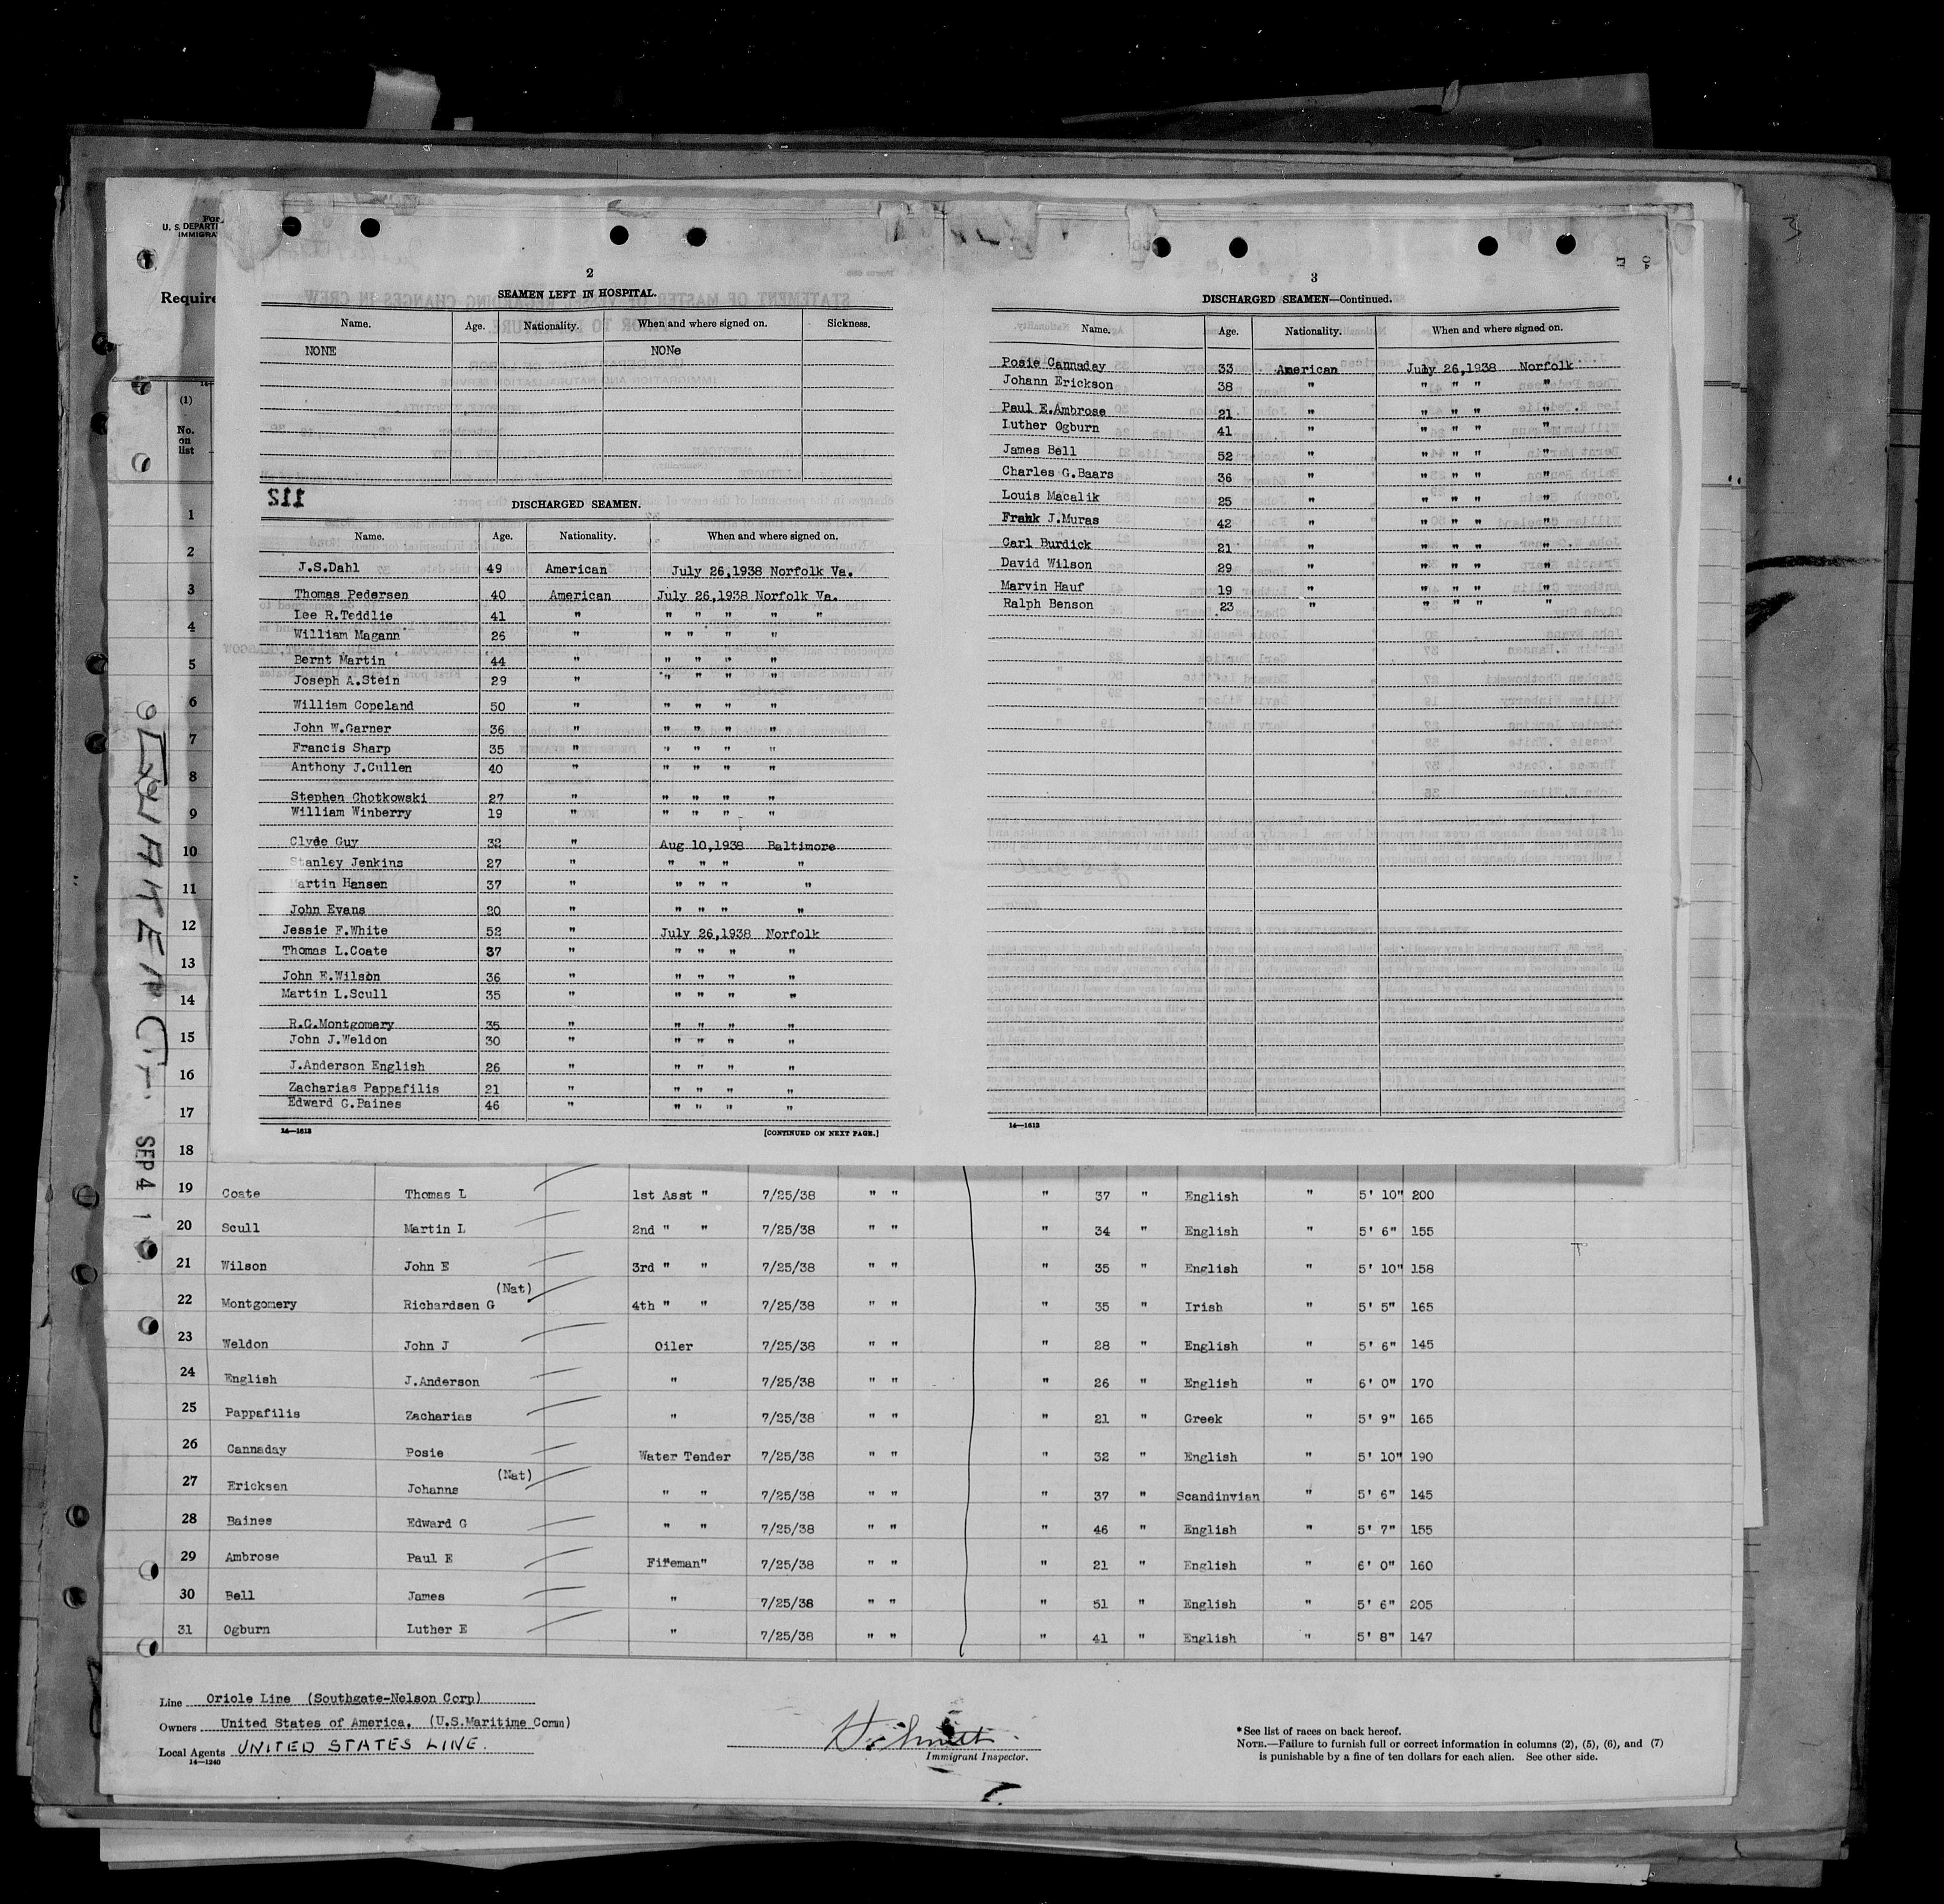 For
U. S. DEPARTM
IMMIGRA
Require
(1)
No.
on
list
1
2
3
4
5
6
7
8
9
10
11
12
13
14
15
16
17
18
SEP 4 1
2
SEAMEN LEFT IN HOSPITAL.
Name. Age. Nationality. When and where signed on. Sickness.
NONE NONe
112
DISCHARGED SEAMEN.
Name. Age. Nationality. When and where signed on.
J.S.Dahl 49 American July 26,1938 Norfolk Va.
Thomas Pedersen 40 American July 26,1938 Norfolk Va.
Lee R.Teddlie 41 " " " " " "
William Magann 26 " " " " "
Bernt Martin 44 " " " " "
Joseph A.Stein 29 " " " " "
William Copeland 50 " " " " "
John W.Garner 36 " " " " "
Francis Sharp 35 " " " " "
Anthony J.Cullen 40 " " " " "
Stephen Chotkowski 27 " " " " "
William Winberry 19 " " " " "
Clyde Guy 32 " Aug 10,1938 Baltimore
Stanley Jenkins 27 " " " " "
Martin Hansen 37 " " " " "
John Evans 20 " " " " "
Jessie F.White 52 " July 26,1938 Norfolk
Thomas L.Coate 37 " " " " "
John E.Wilson 36 " " " " "
Martin L.Scull 35 " " " " "
R.G.Montgomery 35 " " " " "
John J.Weldon 30 " " " " "
J.Anderson English 26 " " " " "
Zacharias Pappafilis 21 " " " " "
Edward G.Baines 46 " " " " "
14—1613 [CONTINUED ON NEXT PAGE.]
3
DISCHARGED SEAMEN—Continued.
Name. Age. Nationality. When and where signed on.
Posie Cannaday 33 American July 26,1938 Norfolk
Johann Erickson 38 " " " " "
Paul E.Ambrose 21 " " " " "
Luther Ogburn 41 " " " " "
James Bell 52 " " " " "
Charles G.Baars 36 " " " " "
Louis Macalik 25 " " " " "
Frank J.Muras 42 " " " " "
Carl Burdick 21 " " " " "
David Wilson 29 " " " " "
Marvin Hauf 19 " " " " "
Ralph Benson 23 " " " " "
14—1613
19 Coate Thomas L 1st Asst " 7/25/38 " " " 37 " English " 5' 10" 200
20 Scull Martin L 2nd " " 7/25/38 " " " 34 " English " 5' 6" 155
21 Wilson John E 3rd " " 7/25/38 " " " 35 " English " 5' 10" 158
(Nat)
22 Montgomery Richardsen G 4th " " 7/25/38 " " " 35 " Irish " 5' 5" 165
23 Weldon John J Oiler 7/25/38 " " " 28 " English " 5' 6" 145
24 English J.Anderson " 7/25/38 " " " 26 " English " 6' 0" 170
25 Pappafilis Zacharias " 7/25/38 " " " 21 " Greek " 5' 9" 165
26 Cannaday Posie Water Tender 7/25/38 " " " 32 " English " 5' 10" 190
(Nat)
27 Ericksen Johanns " " 7/25/38 " " " 37 " Scandinvian " 5' 6" 145
28 Baines Edward G " " 7/25/38 " " " 46 " English " 5' 7" 155
29 Ambrose Paul E Fifeman" 7/25/38 " " " 21 " English " 6' 0" 160
30 Bell James " 7/25/38 " " " 51 " English " 5' 6" 205
31 Ogburn Luther E " 7/25/38 " " " 41 " English " 5' 8" 147
Line Oriole Line (Southgate-Nelson Corp)
Owners United States of America, (U.S.Maritime Comm)
Local Agents UNITED STATES LINE.
14—1240
Immigrant Inspector.
*See list of races on back hereof.
NOTE.—Failure to furnish full or correct information in columns (2), (5), (6), and (7)
is punishable by a fine of ten dollars for each alien. See other side.